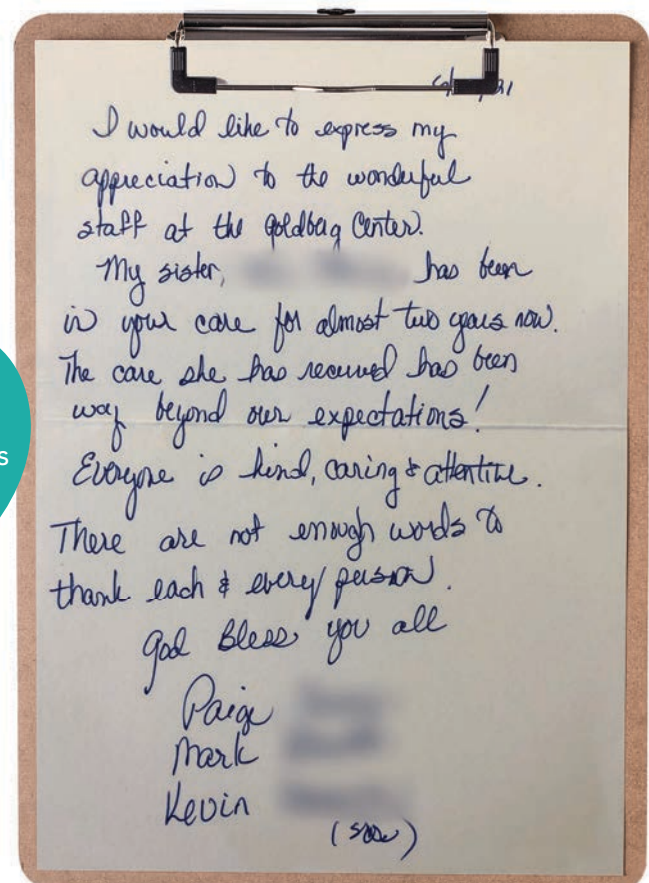 I would like to express my
appreciation to the wonderful
staff at the Goldberg Center.
My sister, has been
in your care for almost two years now.
The care she has received has been
way beyond our expectations!
Everyone is kind, caring & attentive.
There are not enough words to
thank each & every person.
God Bless you all
Paige
Mark
Kevin
s